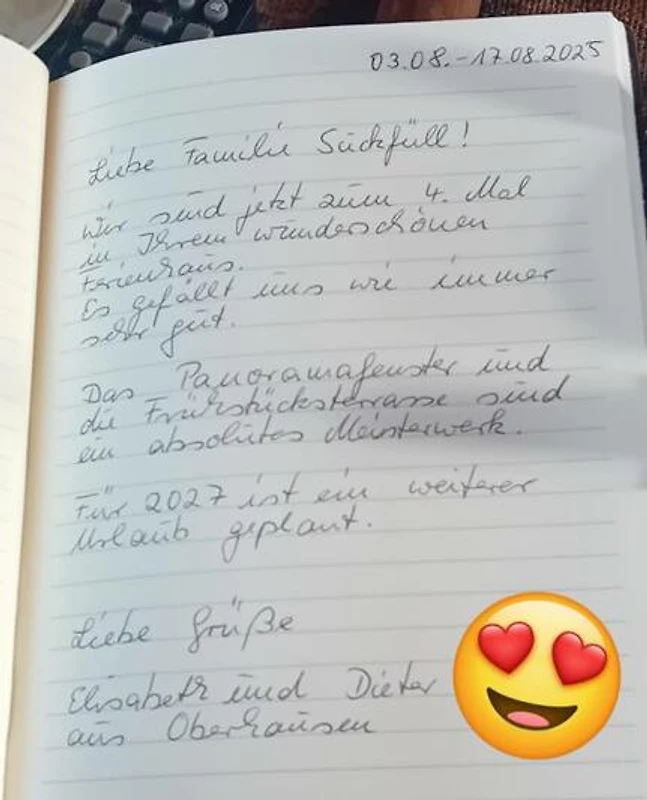 03.08.-17.08.2025
Liebe Familie Sückfüll!
Wir sind jetzt zum 4. Mal
in Ihrem wunderschönen
Ferienhaus.
Es gefällt uns wie immer
sehr gut.
Das Panoramafenster und
die Frühstücksterrasse sind
ein absolutes Meisterwerk.
Für 2027 ist ein weiterer
Urlaub geplant.
Liebe Grüße
Elisabeth und Dieter
aus Oberhausen